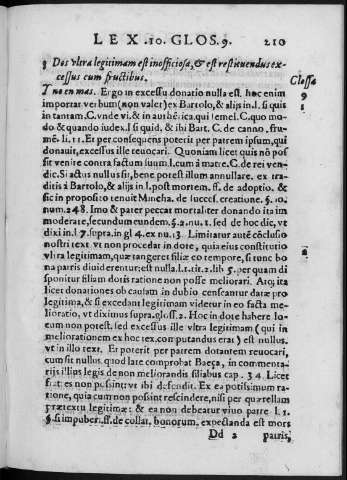 LEX .10. GLOS. 9. 210
3 Dos vltra legitimam est inofficiosa, & est restituendus ex-
cessus cum fructibus.
Glossa
9
1
no en mas. Ergo in excessu donatio nulla est. hoc enim
importat verbum (non valet) ex Bartolo, & alijs in l. si quis
in tantam. C. vnde vi. & in authẽtica. qui semel. C. quo mo-
do & quando iudex. l. si quid, & ibi Bart. C. de canno, fru-
mẽ. li. 11. Et per consequens poterit per patrem ipsum, qui
donauit, excessus ille reuocari. Quoniam licet quis nõ pos
sit venire contra factum suum l. cum à matre. C. de rei ven-
dic. Si actus nullus sit, bene potest illum annullare. ex tra-
ditis à Bartolo, & alijs in l. post mortem. ff. de adoptio. &
sic in proposito tenuit Mincha. de succes. creatione. §. 10.
num. 248. Imo & pater peccat mortaliter donando ita im
moderate, secundum eundem. §. 2. nu. 1. sed de hoc dic, vt
dixi in l. 7. supra. in gl. 4. ex nu. 13. Limitatur autẽ cõclusio
2
nostri text vt non procedat in dote, quia eius constitutio
vltra legitimam, quæ tangeret filiæ eo tempore, si tunc bo
na patris diuiderentur: est nulla. l. 1. tit. 2. lib 5. per quam di
sponitur filiam dotis ratione non posse meliorari. Atq; ita
licet donationes ob causam in dubio censeantur datæ pro
legitima, & si excedant legitimam videtur in eo facta me-
lioratio, vt diximus supra. gloss. 2. Hoc in dote habere lo-
cum non potest. sed excessus ille vltra legitimam (qui in
meliorationem ex hoc tex. computandus erat) est nullus.
vt in illo text. Et poterit per patrem dotantem reuocari,
cum sit nullus. quod late comprobat Baeça, in commenta-
rijs illius legis de non meliorandis filiabus cap. 34. Licet
filiæ es non possint vt ibi defendit. Ex ea potissimum ra-
tione, quia cum non possint rescindere, nisi per quærellam
prætextu legitimæ: & ea non debeatur viuo patre l. 1.
§. si impuberi. ff. de collat. bonorum, expectanda est mors
Dd 2 patris,